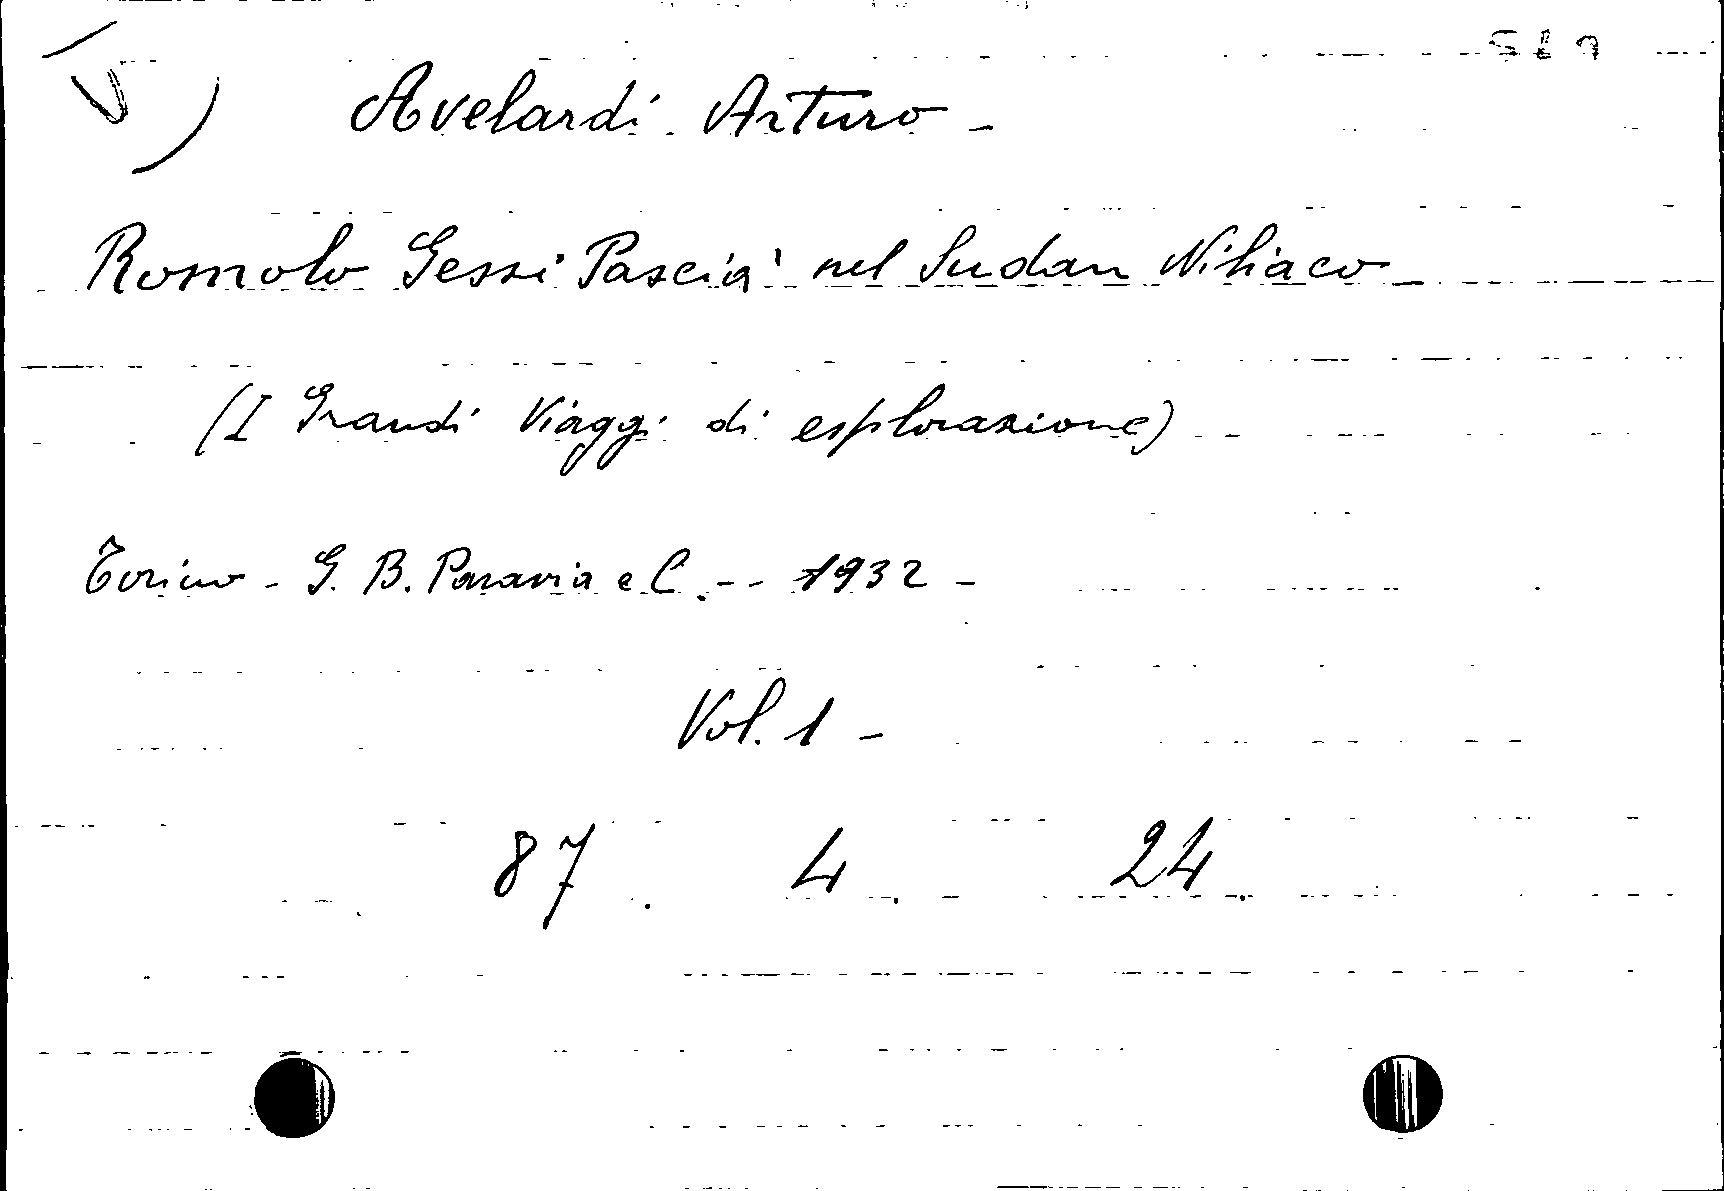 Avelardi Arturo -
Romolo Gessi Pascià nel Sudan Niliaco
(I Grandi Viaggi di esplorazione)
Torino - G. B. Paravia e C. - - 1932 -
Vol. 1 -
87 4 24